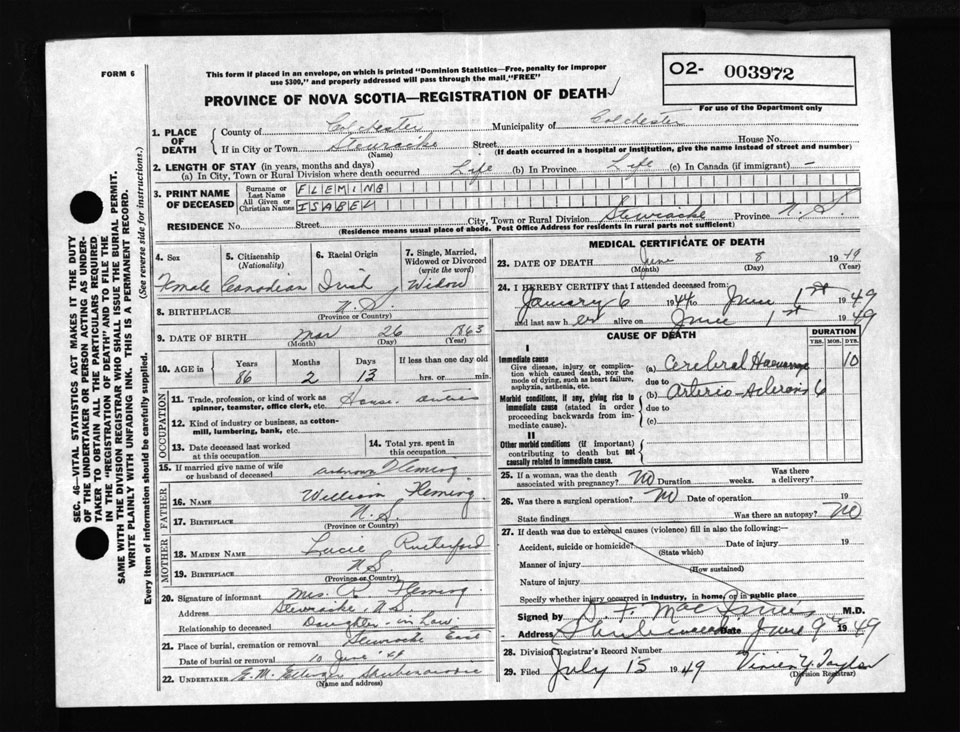 FORM 6
This form if placed in an envelope, on which is printed "Dominion Statistics—Free, penalty for improper
use $300," and properly addressed will pass through the mail "FREE"
02- 003972
For use of the Department only
PROVINCE OF NOVA SCOTIA—REGISTRATION OF DEATH
SEC. 46—VITAL STATISTICS ACT MAKES IT THE DUTY
OF THE UNDERTAKER OR PERSON ACTING AS UNDER-
TAKER TO OBTAIN ALL THE PARTICULARS REQUIRED
IN THE "REGISTRATION OF DEATH" AND TO FILE THE
SAME WITH THE DIVISION REGISTRAR WHO SHALL ISSUE THE BURIAL PERMIT.
WRITE PLAINLY WITH UNFADING INK. THIS IS A PERMANENT RECORD.
Every item of information should be carefully supplied. (See reverse side for instructions.)
1. PLACE OF DEATH County of Colchester Municipality of Colchester
If in City or Town Stewiacke Street House No.
(Name) (If death occurred in a hospital or institution, give the name instead of street and number)
2. LENGTH OF STAY (in years, months and days)
(a) In City, Town or Rural Division where death occurred Life (b) In Province Life (c) In Canada (if immigrant) —
3. PRINT NAME OF DECEASED Surname or Last Name FLEMING
All Given or Christian Names ISABEL
RESIDENCE No. Street City, Town or Rural Division Stewiacke Province N.S.
(Residence means usual place of abode. Post Office Address for residents in rural parts not sufficient)
4. Sex Female
5. Citizenship (Nationality) Canadian
6. Racial Origin Irish
7. Single, Married, Widowed or Divorced (write the word) Widow
8. BIRTHPLACE N.S.
(Province or Country)
9. DATE OF BIRTH Mar 26 1863
(Month) (Day) (Year)
10. AGE in Years 86 Months 2 Days 13 If less than one day old hrs. or min.
OCCUPATION
11. Trade, profession, or kind of work as spinner, teamster, office clerk, etc. House duties
12. Kind of industry or business, as cotton-mill, lumbering, bank, etc.
13. Date deceased last worked at this occupation
14. Total yrs. spent in this occupation
15. If married give name of wife or husband of deceased unknown Fleming
FATHER
16. NAME William Fleming
17. BIRTHPLACE N.S.
(Province or Country)
MOTHER
18. MAIDEN NAME Lucie Rutherford
19. BIRTHPLACE N.S.
(Province or Country)
20. Signature of informant Mrs. R. Fleming
Address Stewiacke, N.S.
Relationship to deceased Daughter-in-Law
21. Place of burial, cremation or removal Stewiacke East
Date of burial or removal 10 June '49
22. UNDERTAKER E. M. Shubenacadie
(Name and address)
MEDICAL CERTIFICATE OF DEATH
23. DATE OF DEATH June 8 1949
(Month) (Day) (Year)
24. I HEREBY CERTIFY that I attended deceased from:
January 6 1944 to June 1st 1949
and last saw her alive on June 1st 1949
CAUSE OF DEATH DURATION
YRS. MOS. DYS.
I
Immediate cause
Give disease, injury or complication which caused death, nor the mode of dying, such as heart failure, asphyxia, asthenia, etc.
(a) Cerebral Haemorrhage 10
due to
Morbid conditions, if any, giving rise to immediate cause (stated in order proceeding backwards from immediate cause).
(b) Arterio-sclerosis 6
due to
(c)
II
Other morbid conditions (if important) contributing to death but not causally related to immediate cause.
25. If a woman, was the death associated with pregnancy? No Duration weeks. Was there a delivery?
26. Was there a surgical operation? No Date of operation 19
State findings Was there an autopsy? No
27. If death was due to external causes (violence) fill in also the following:—
Accident, suicide or homicide? Date of injury 19
(State which)
Manner of injury
(How sustained)
Nature of injury
Specify whether injury occurred in industry, in home, or in public place
Signed by D. F. MacInnis M.D.
Address Shubenacadie Date June 9th 1949
28. Division Registrar's Record Number
29. Filed July 15 1949 Vivien Y. Taylor
(Division Registrar)